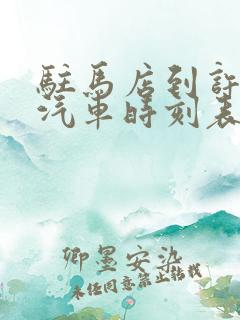 駐馬店到許
汽車時刻表
卿墨安染
未经同意禁止转载